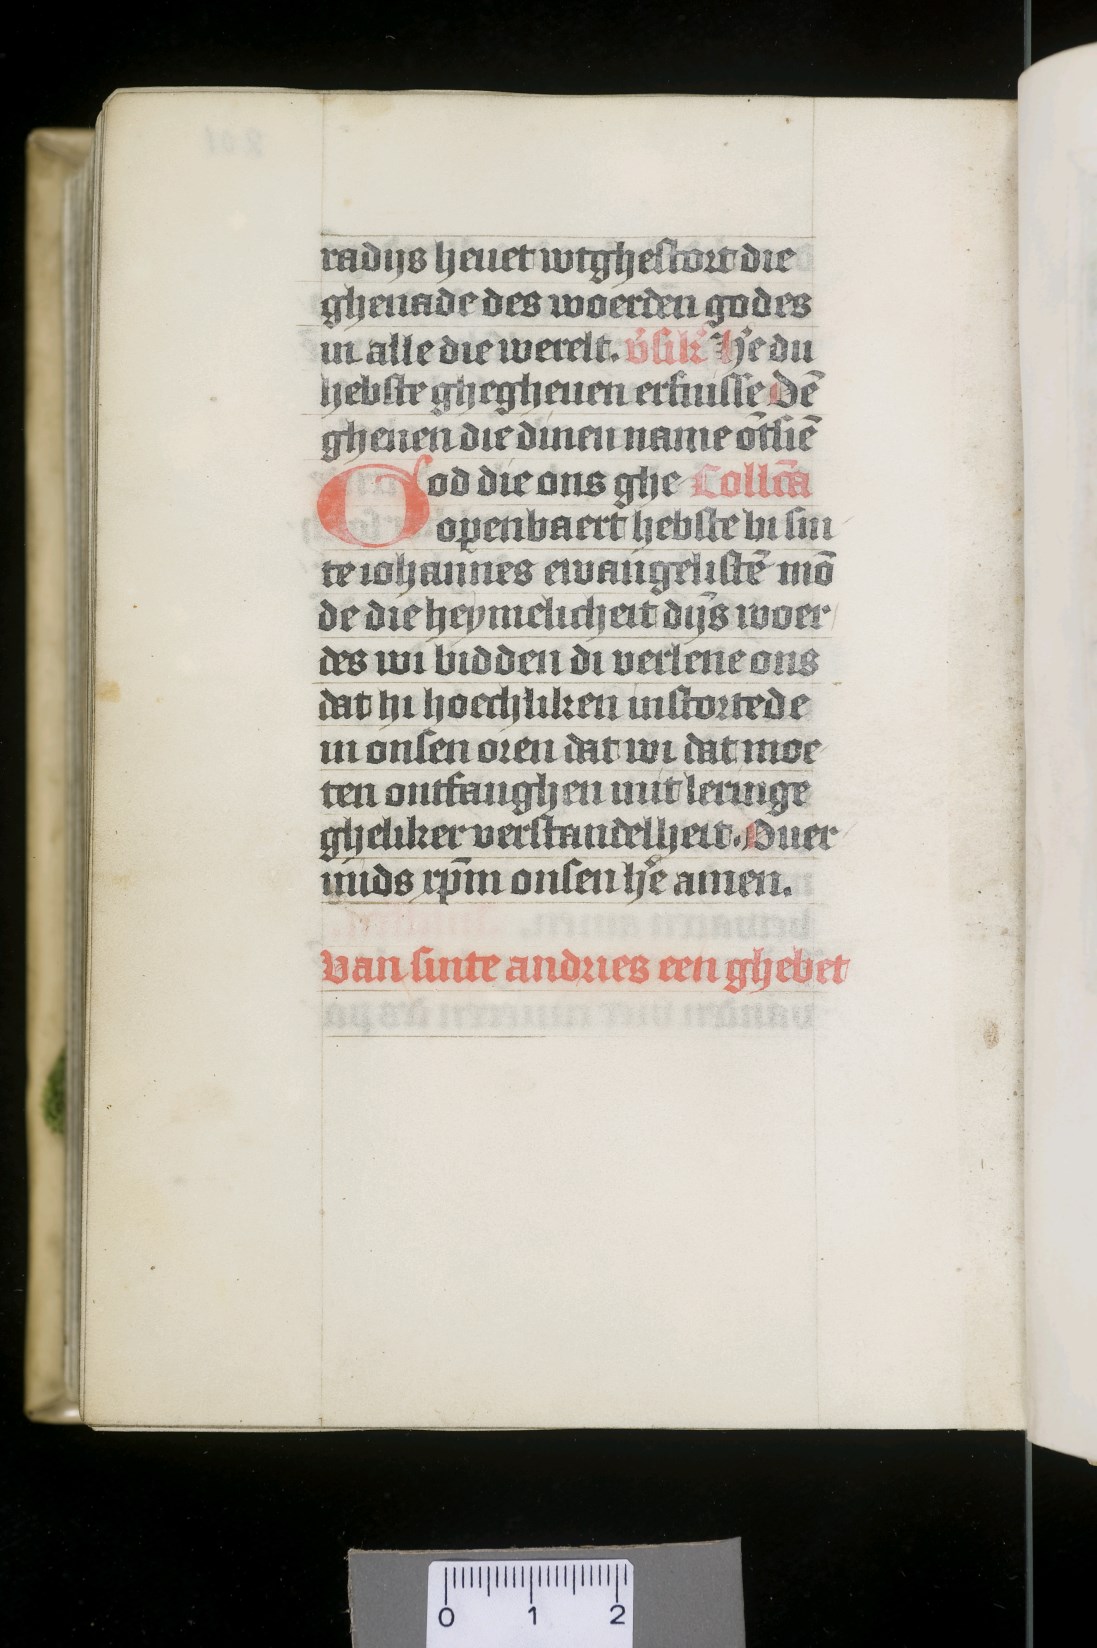 radijs heuet wtghestort die
ghenade des woerden godes
in alle die werelt. v̓sik̓ He̓ du
hebste ghegheuen erfnisse Dē
ghenen die dinen name ōtsiē
God die ons ghe Collc̄a
openbaert hebste bi sin
te iohannes ewangelistē mō
de die heymelicheit dijs woer
des wi bidden di verlene ons
dat hi hoechliken instortede
in onsen oren dat wi dat moe
ten ontfanghen mit leringe
gheliker verstandelheit. Ouer
mids xp̄m onsen he̓ amen.
Van sinte andries een ghebet
0 1 2